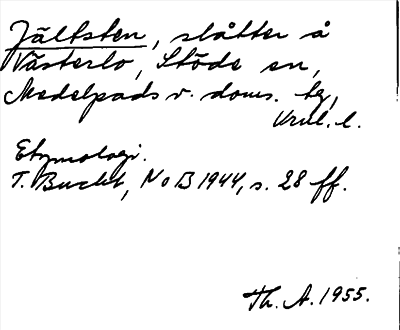 Jältsten, slåtter å
Västerlo, Stöde sn,
Medelpads v. doms. tg,
Etymologi.
T. Bucht, NoB 1944, s. 28 ff.
Th. A. 1955.